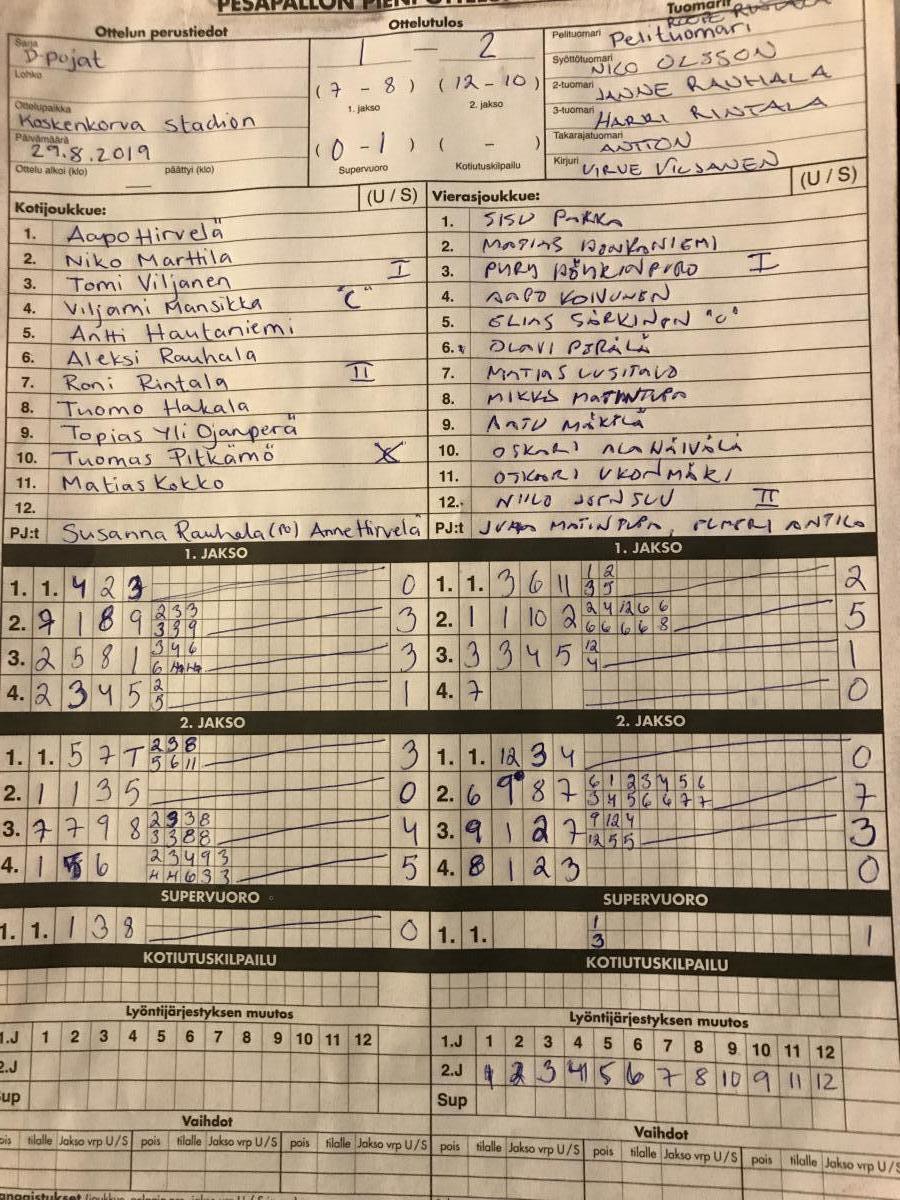 PESÄPALLON PIENI
Ottelun perustiedot
Ottelutulos
Tuomarit
Sarja D-pojat
Lohko
Ottelupaikka Koskenkorva stadion
Päivämäärä 29.8.2019
Ottelu alkoi (klo) päättyi (klo)
1 — 2
(7 - 8) (12 - 10)
1. jakso 2. jakso
(0 - 1) ( - )
Supervuoro Kotiutuskilpailu
Pelituomari Pelituomari
Syöttötuomari NICO OLSSON
2-tuomari JANNE RAUHALA
3-tuomari HARRI RINTALA
Takarajatuomari ANTTON
Kirjuri VIRVE
Kotijoukkue: (U / S)
1. Aapo Hirvelä
2. Niko Marttila
3. Tomi Viljanen I
4. Viljami Mansikka "C"
5. Antti Hautaniemi
6. Aleksi Rauhala
7. Roni Rintala II
8. Tuomo Hakala
9. Topias Yli Ojanperä
10. Tuomas Pitkämö
11. Matias Kokko
12.
PJ:t Susanna Rauhala (PJ) Anne Hirvelä
Vierasjoukkue: (U / S)
1. SISU PAKKA
2. MATIAS HONKANIEMI
3. PYRY I
4. AAPO KOIVUNEN
5. ELIAS SÄRKINEN "C"
6. OLAVI PERÄLÄ
7. MATIAS UUSITALO
8. MIKKO MATINTUPA
9. ARTU MÄKELÄ
10. OSKARI ALANÄIVÄLÄ
11. OTKARI UKONMÄKI
12. NIILO JOENSUU II
PJ:t JUHA MATINTUPA, ELMERI ANTILA
1. JAKSO
1. 1. 4 2 3 0
2. 7 1 8 9 2 3 3 3 3 9 3
3. 2 5 8 1 3 4 6 6 3
4. 2 3 4 5 2 5 1
2. JAKSO
1. 1. 5 7 T 2 3 8 5 6 11 3
2. 1 1 3 5 0
3. 7 7 9 8 2 3 3 8 3 3 8 8 4
4. 1 6 2 3 4 9 3 4 4 6 3 3 5
SUPERVUORO
1. 1. 1 3 8 0
KOTIUTUSKILPAILU
1. JAKSO
1. 1. 3 6 11 1 2 3 5 2
2. 1 1 10 2 2 4 12 6 6 6 6 6 6 8 5
3. 3 3 4 5 12 4 1
4. 7 0
2. JAKSO
1. 1. 12 3 4 0
2. 6 9 8 7 6 1 2 3 4 5 6 3 4 5 6 6 7 7 7
3. 9 1 2 7 9 12 4 12 5 5 3
4. 8 1 2 3 0
SUPERVUORO
1. 1. 1 3 1
KOTIUTUSKILPAILU
Lyöntijärjestyksen muutos
1.J 1 2 3 4 5 6 7 8 9 10 11 12
2.J
Sup
Vaihdot
pois tilalle Jakso vrp U/S pois tilalle Jakso vrp U/S pois tilalle Jakso vrp U/S
Lyöntijärjestyksen muutos
1.J 1 2 3 4 5 6 7 8 9 10 11 12
2.J 1 2 3 4 5 6 7 8 10 9 11 12
Sup
Vaihdot
pois tilalle Jakso vrp U/S pois tilalle Jakso vrp U/S pois tilalle Jakso vrp U/S